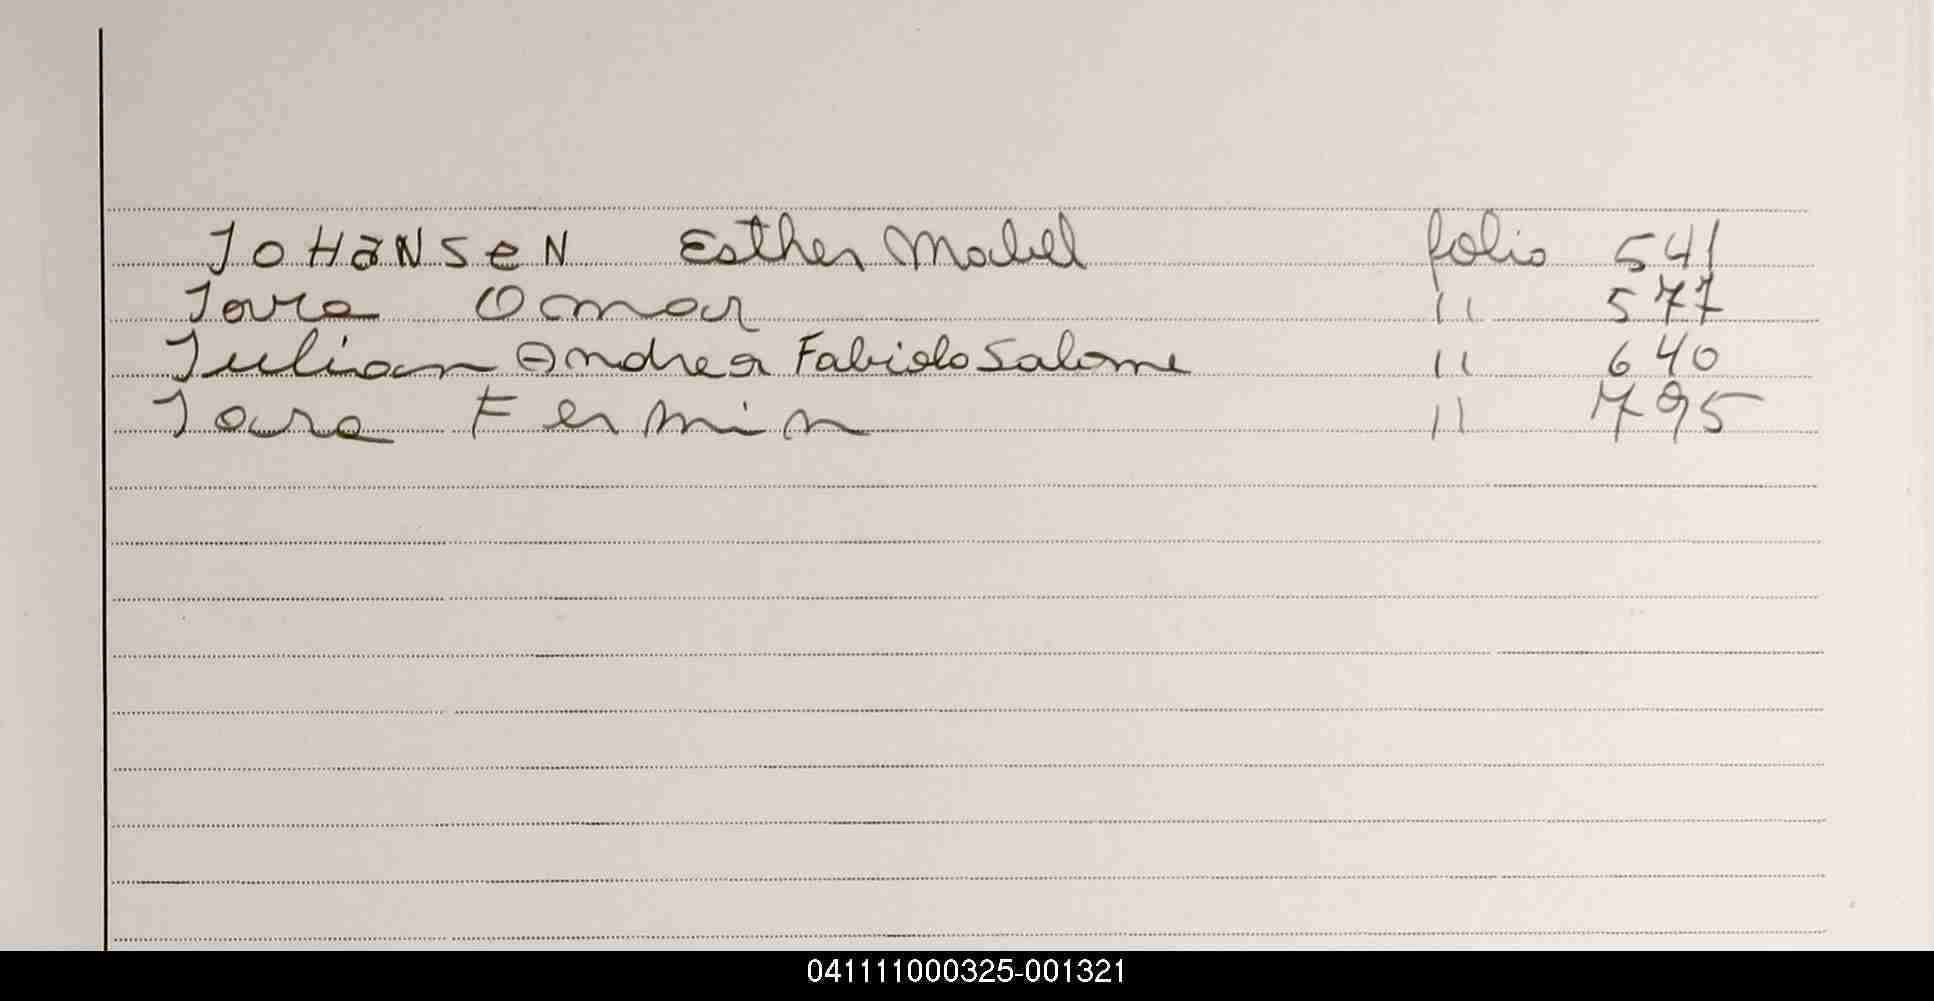 JOHANSEN Esther Mabel folio 541
Jara Omar " 577
Julian Andrea Fabiola Salome " 640
Jara Fermin " 795
041111000325-001321